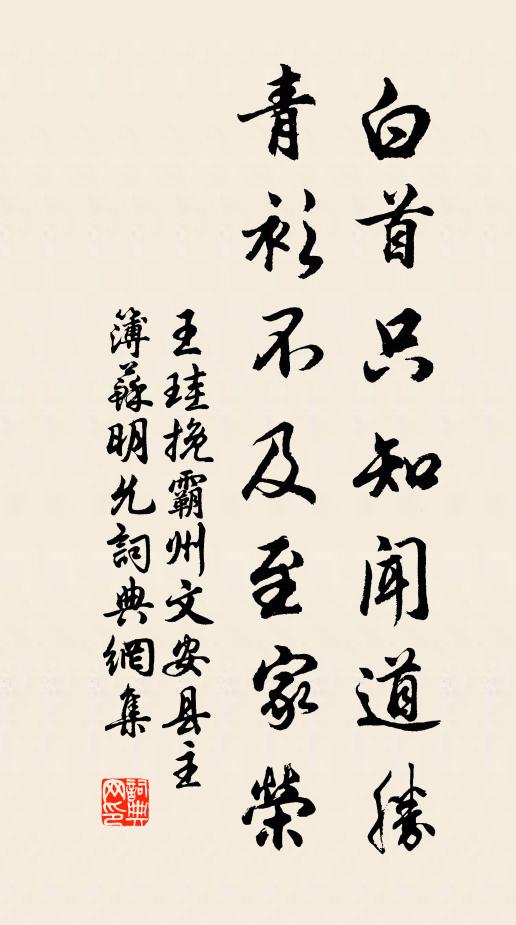 白首只知闻道勝
青衫不及至家榮
王珪挽霸州文安县主
簿蘇明允詞典網集
詞典
网印